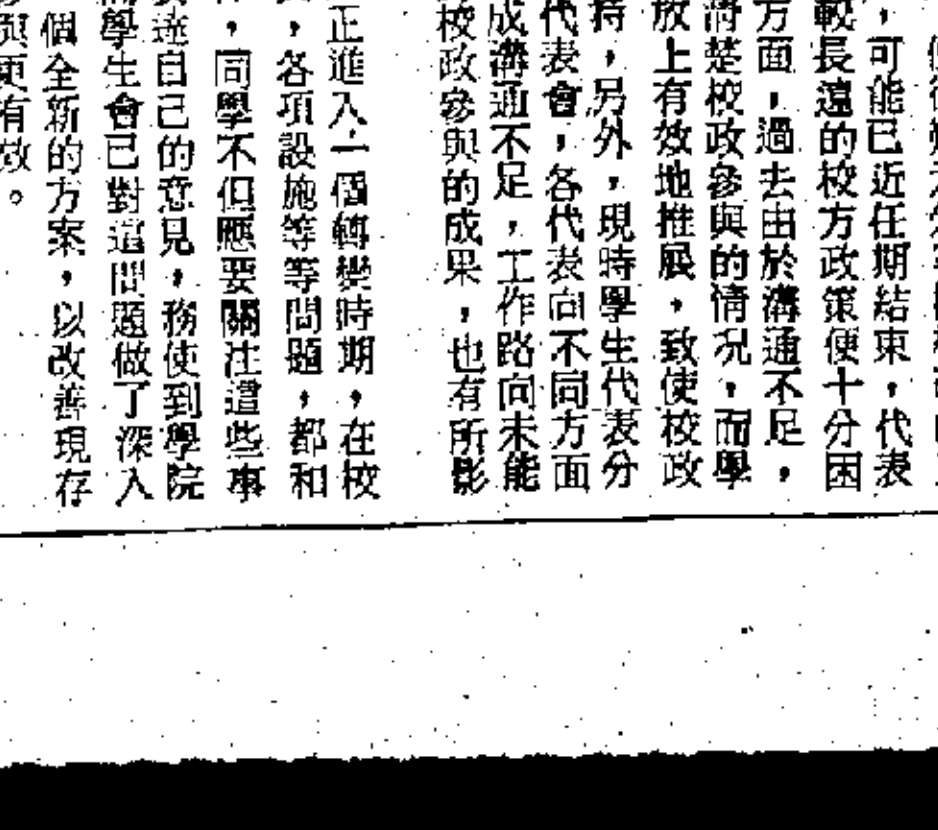 ，可能已近任期結束，代表
較長遠的校方政策便十分困
方面，過去由於溝通不足，
清楚校政參與的情況，而學
放上有效地推展，致使校政
持，另外，現時學生代表分
代表會，各代表向不同方面
成溝通不足，工作路向未能
校政參與的成果，也有所影
正進入一個轉變時期，在校
，各項設施等等問題，都和
，同學不但應要關注這些事
達自己的意見，務使到學院
學生會已對這問題做了深入
個全新的方案，以改善現存
與更有效。